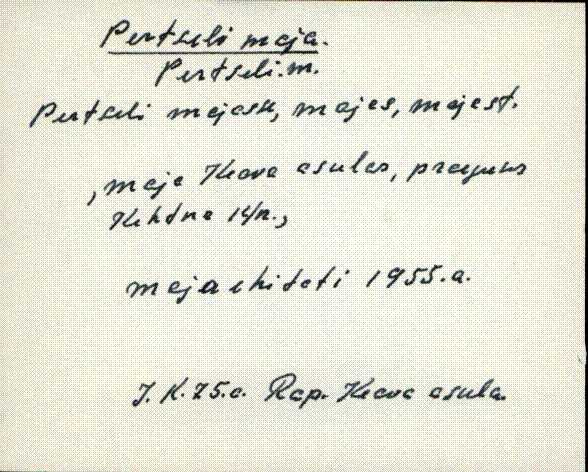 Pertseli maja.
Pertseli.m.
Pertseli majasse, majas, majast.
, maja Keava asulas, praegune
Kehtna k/n.,
maja ehitati 1955.a.
J.K.75.a. Rap. Keava asula.